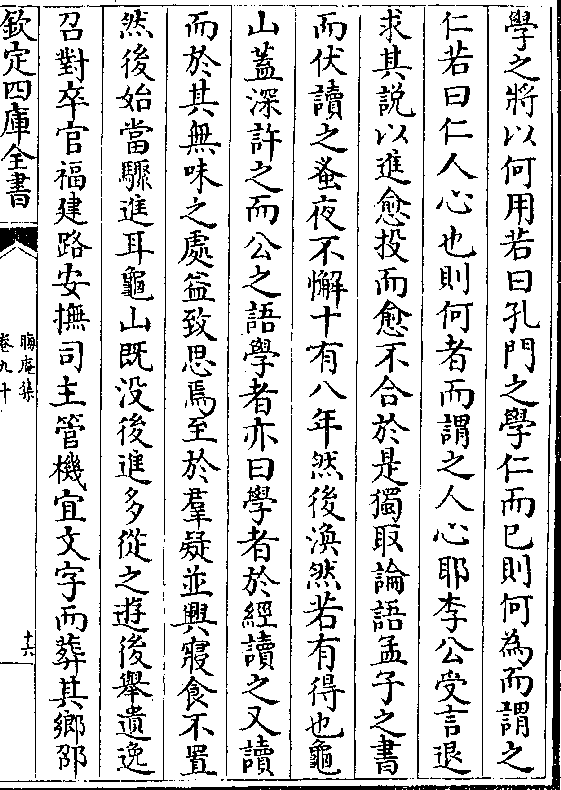 學之將以何用若曰孔門之學仁而已則何為而謂之
仁若曰仁人心也則何者而謂之人心耶李公受言退
求其說以進愈投而愈不合於是獨取論語孟子之書
而伏讀之蚤夜不懈十有八年然後渙然若有得也龜
山蓋深許之而公之語學者亦曰學者於經讀之又讀
而於其無味之處益致思焉至於羣疑並興寢食不置
然後始當驟進耳龜山既没後進多從之遊後舉遺逸
召對卒官福建路安撫司主管機宜文字而葬其鄉邵
欽定四庫全書
晦庵集
卷九十
十六